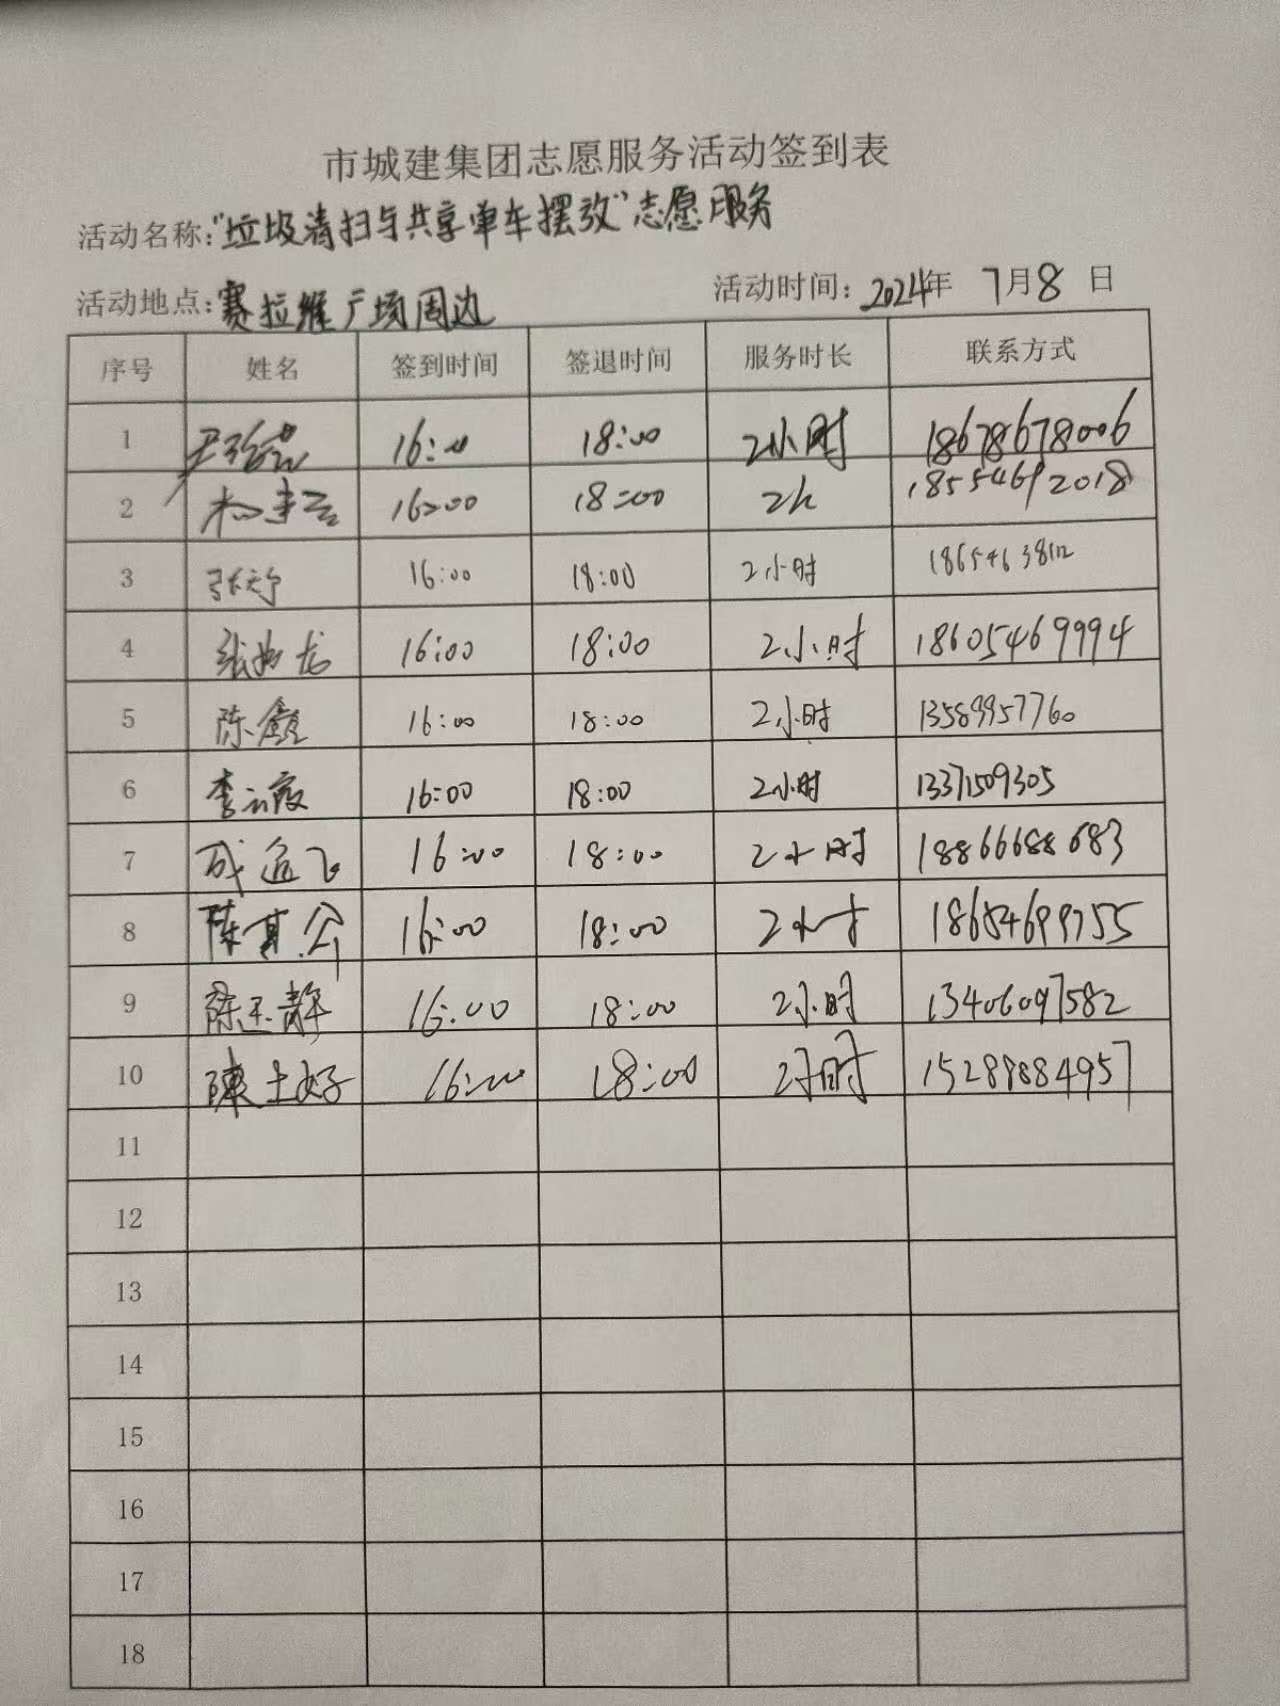 市城建集团志愿服务活动签到表
活动名称:"垃圾清扫与共享单车摆放"志愿服务
活动地点:赛拉维广场周边 活动时间: 2024年 7月8日
序号 姓名 签到时间 签退时间 服务时长 联系方式
1 16:00 18:00 2小时 18678678006
2 16:00 18:00 2h 18554692018
3 16:00 18:00 2小时
4 16:00 18:00 2小时 18605469994
5 陈鑫 16:00 18:00 2小时 13589957760
6 李云霞 16:00 18:00 2小时 13371509305
7 成近飞 16:00 18:00 2小时 18866688683
8 陈其公 16:00 18:00 18654699755
9 陈玉静 16:00 18:00 2小时 13406097582
10 陳士好 16:00 18:00 2小时 15288884957
11
12
13
14
15
16
17
18